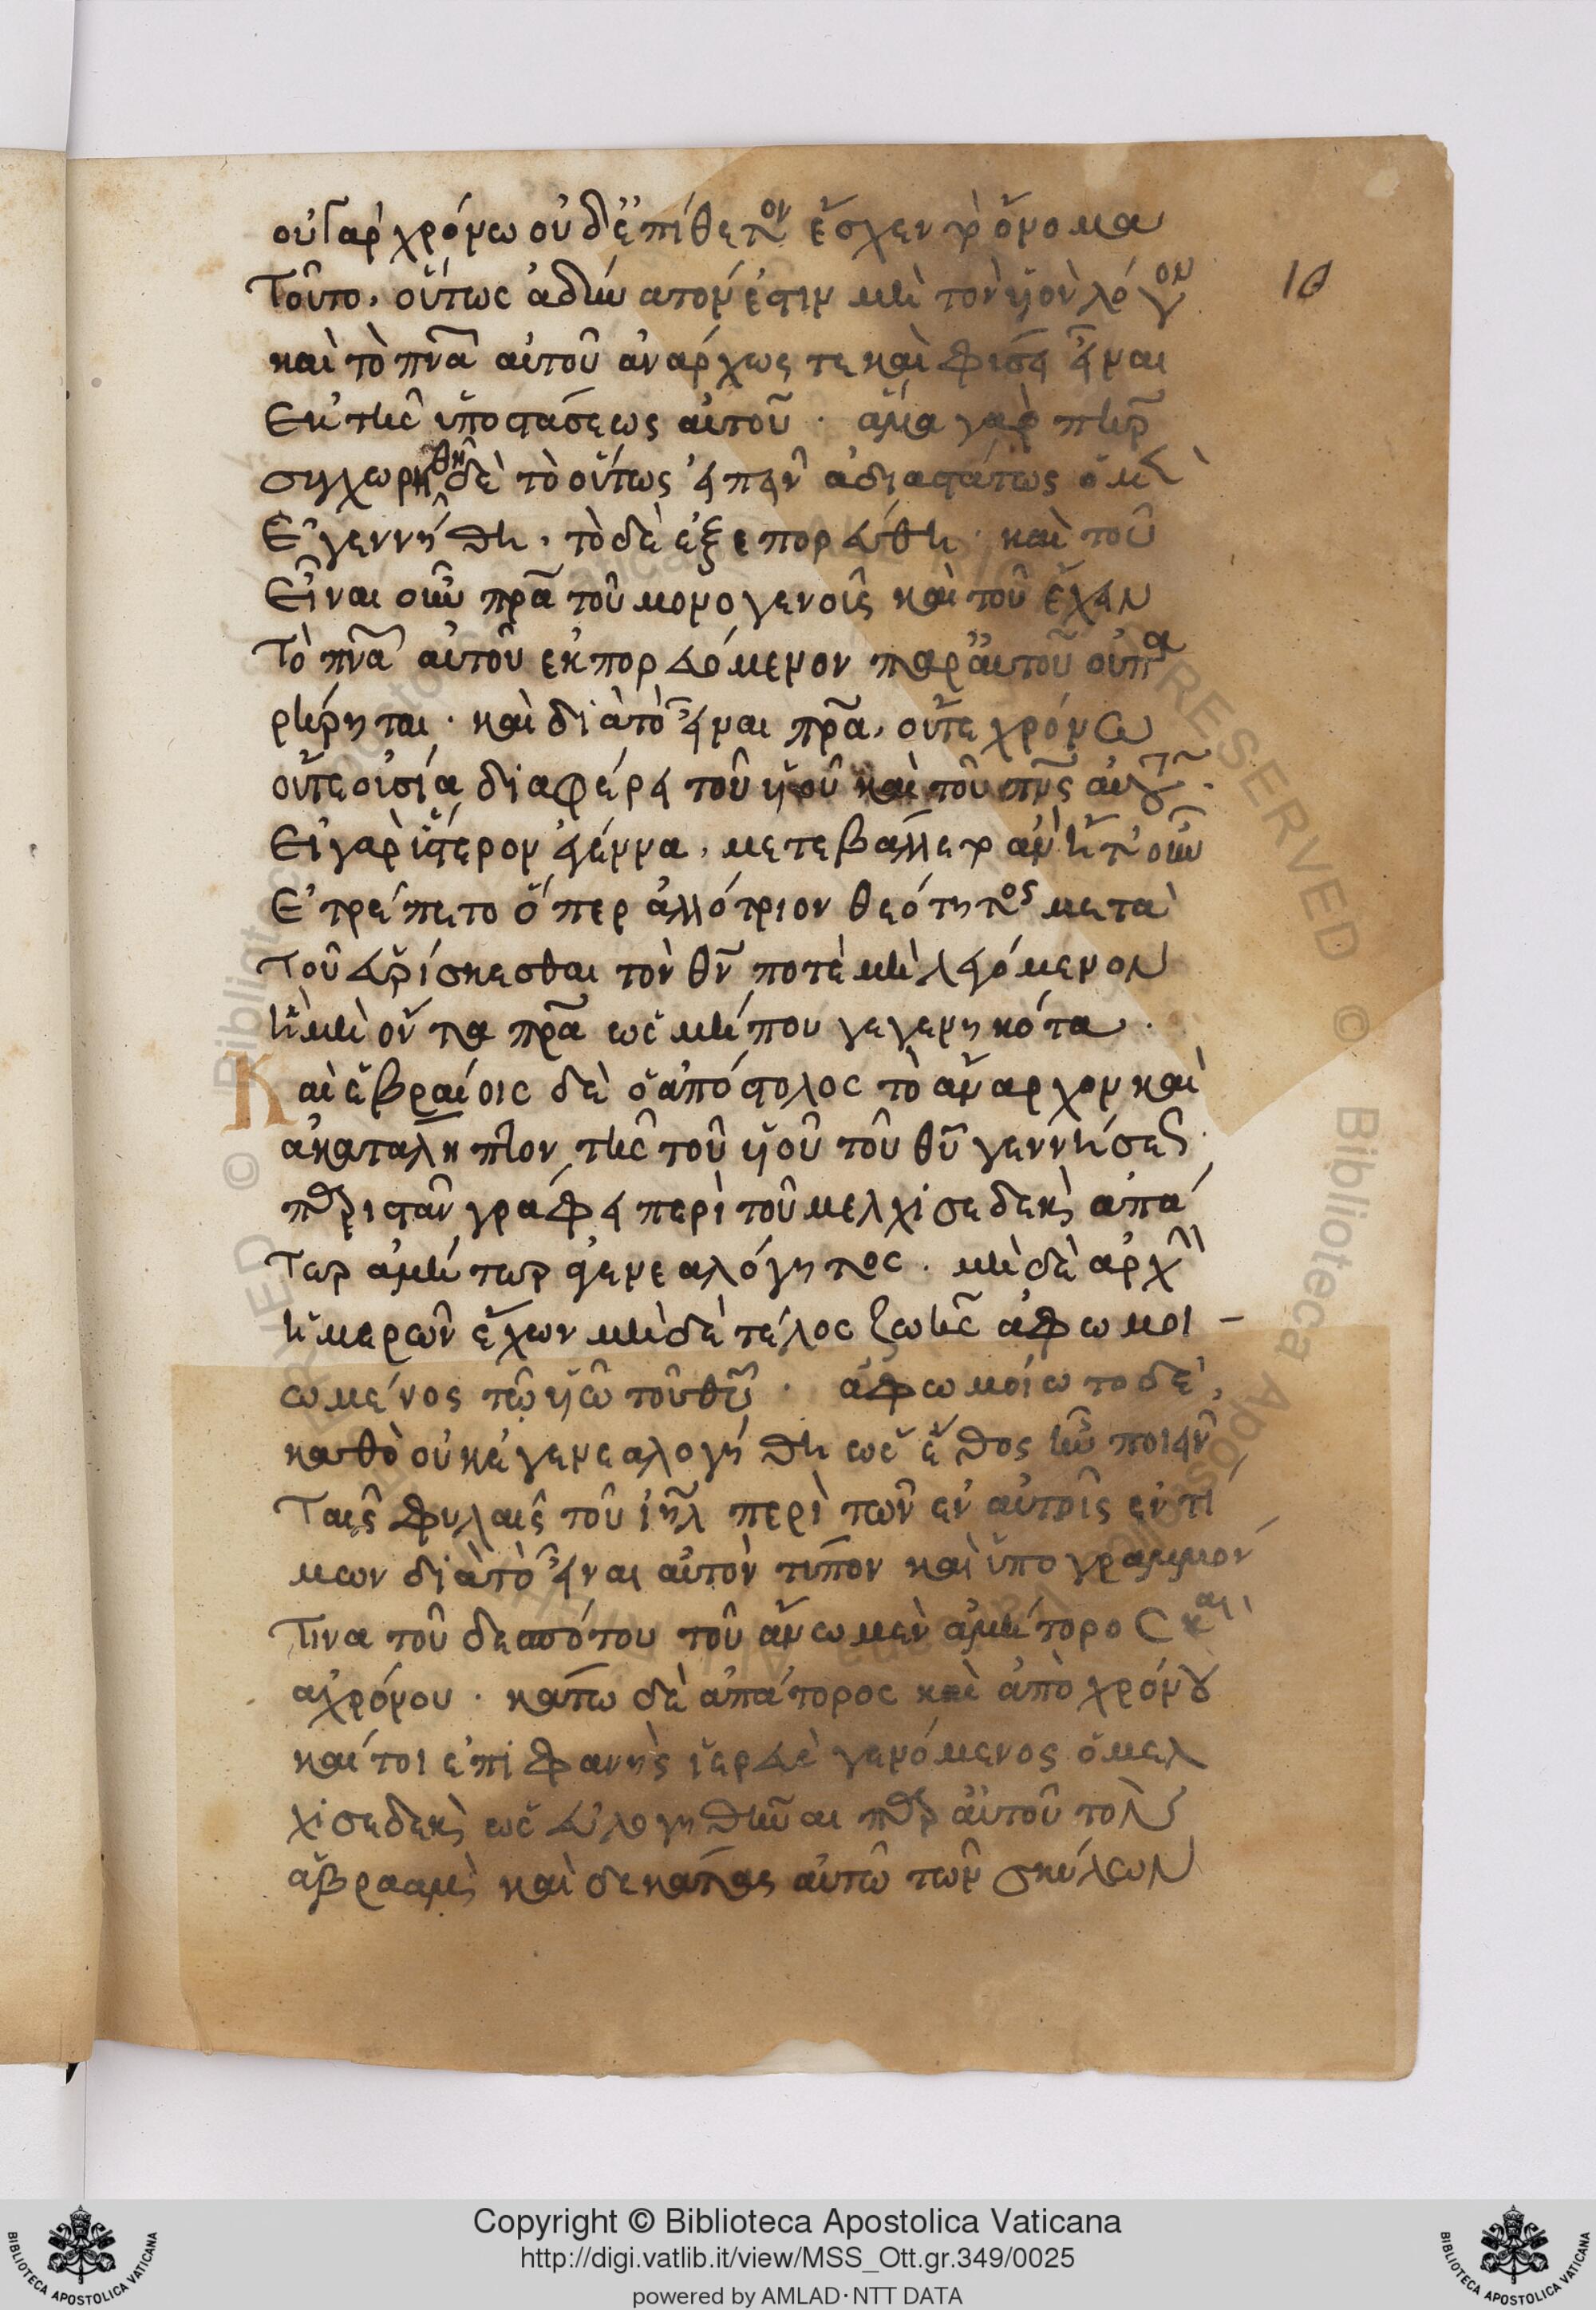 οὐ γὰρ χρόνω οὐδ' ἐπίθετον ἔσχεν τὸ ὄνομα
τοῦτο. οὕτως ἀδύνατον ἐστιν μὴ τὸν υἱὸν λόγον
10
καὶ τὸ πνα αὐτοῦ ἀνάρχως τε καὶ φύσει εἶναι
ἐκ τῆς ὑποστάσεως αὐτοῦ · ἅμα γὰρ πηρ
συγχωρηθῆ δὲ τὸ οὕτως εἰπεῖν ἀδιαστάτως ὁ μὲν
ἐγεννήθη, τὸ δὲ ἐξεπορεύθη · καὶ τοῦ
εἶναι οὖν πρα τοῦ μονογενοῦς καὶ τοῦ ἔχειν
τὸ πνα αὐτοῦ ἐκπορευόμενον παρ' αὐτοῦ οὐ πα
ρήρηται · καὶ διὰ τὸ εἶναι πρα, οὔτε χρόνω
οὔτε οὐσία διαφέρει τοῦ υἱοῦ καὶ τοῦ πνς αὐτοῦ ·
εἰ γὰρ ὕστερον ἐγέννα, μετεβάλλετο ἂν ἤτοι οὖν
ἐτρέπετο ὅπερ ἀλλότριον θεότητος μετὰ
τοῦ εὑρίσκεσθαι τὸν θν ποτὲ μὴ λεγόμενον
ἢ μὴ ὄντα πρα ὡς μήπου γεγεννηκότα ·
Καὶ ἑβραίοις δὲ ὁ ἀπόστολος τὸ ἄναρχον καὶ
ἀκατάληπτον τῆς τοῦ υἱοῦ τοῦ θυ γεννήσεως
παριστᾶν γράφει περὶ τοῦ μελχισεδεκ ἀπά
τωρ ἀμήτωρ ἀγενεαλόγητος · μὴ δὲ ἀρχὴν
ἡμερῶν ἔχων μὴ δὲ τέλος ζωῆς ἀφωμοι –
ωμένος τῶ υἱῶ τοῦ θυ · ἀφωμοίωτο δὲ,
καθὸ οὐκ ἐγενεαλογήθη ὡς ἔθος ἦν ποιεῖν
ταῖς φυλαῖς τοῦ ιηλ περὶ τῶν ἐν αὐτοῖς ἐντί
μων διὰ τὸ εἶναι αὐτὸν τύπον καὶ ὑπογραμμόν
τινα τοῦ δεσπότου τοῦ ἄνω μὲν ἀμήτορος καὶ
ἀχρόνου · κάτω δὲ ἀπάτορος καὶ ἀπὸ χρόνου
καί τοι ἐπιφανὴς ἱερεὺς γενόμενος ὁ μελ
χισεδεκ ὡς εὐλογηθῆναι παρ' αὐτοῦ τὸν
ἀβραὰμ καὶ δεκάτας αὐτῶ τῶν σκύλων
Copyright © Biblioteca Apostolica Vaticana
http://digi.vatlib.it/view/MSS_Ott.gr.349/0025
powered by AMLAD·NTT DATA